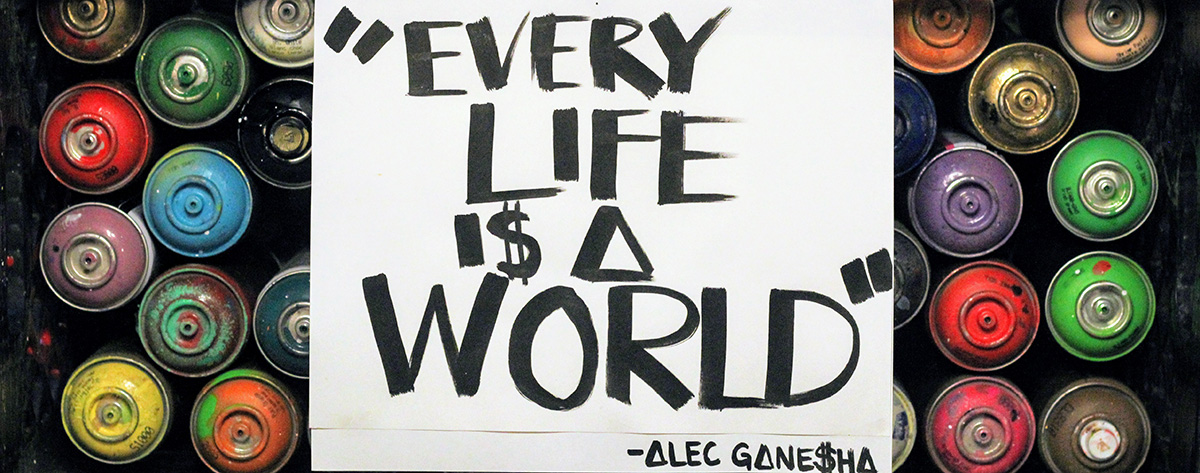 "EVERY
LIFE
I$ A
WORLD"
-ALEC GANE$HA